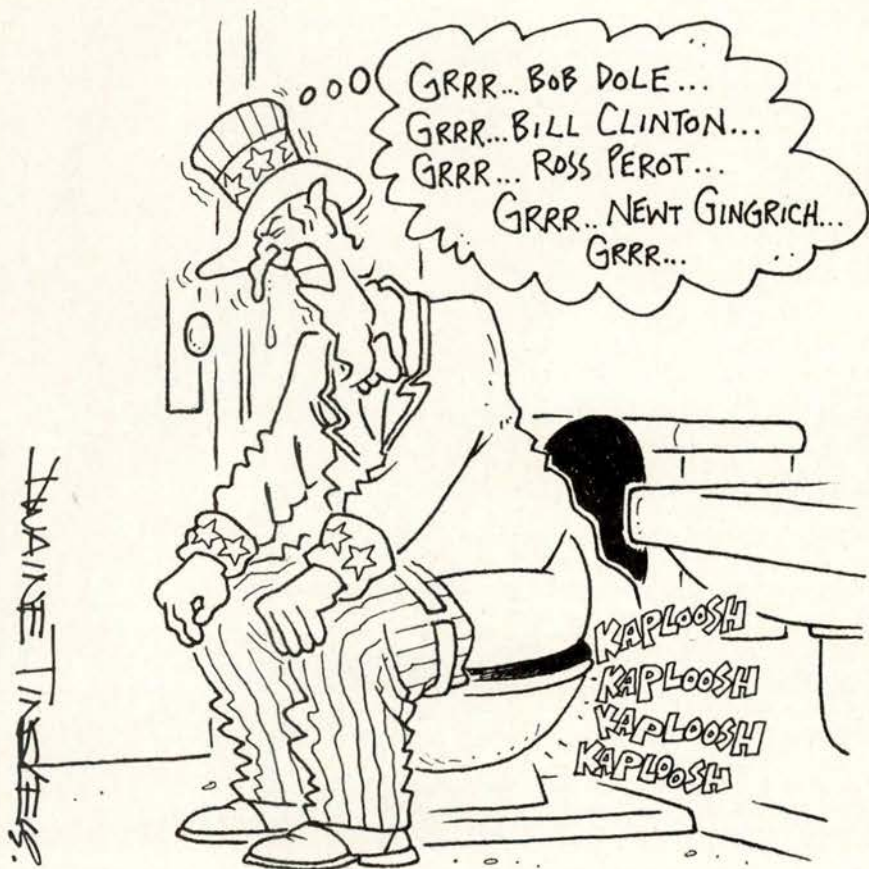 GRRR... BOB DOLE...
GRRR...BILL CLINTON...
GRRR... ROSS PEROT...
GRRR.. NEWT GINGRICH...
GRRR...
KAPLOOSH
KAPLOOSH
KAPLOOSH
KAPLOOSH